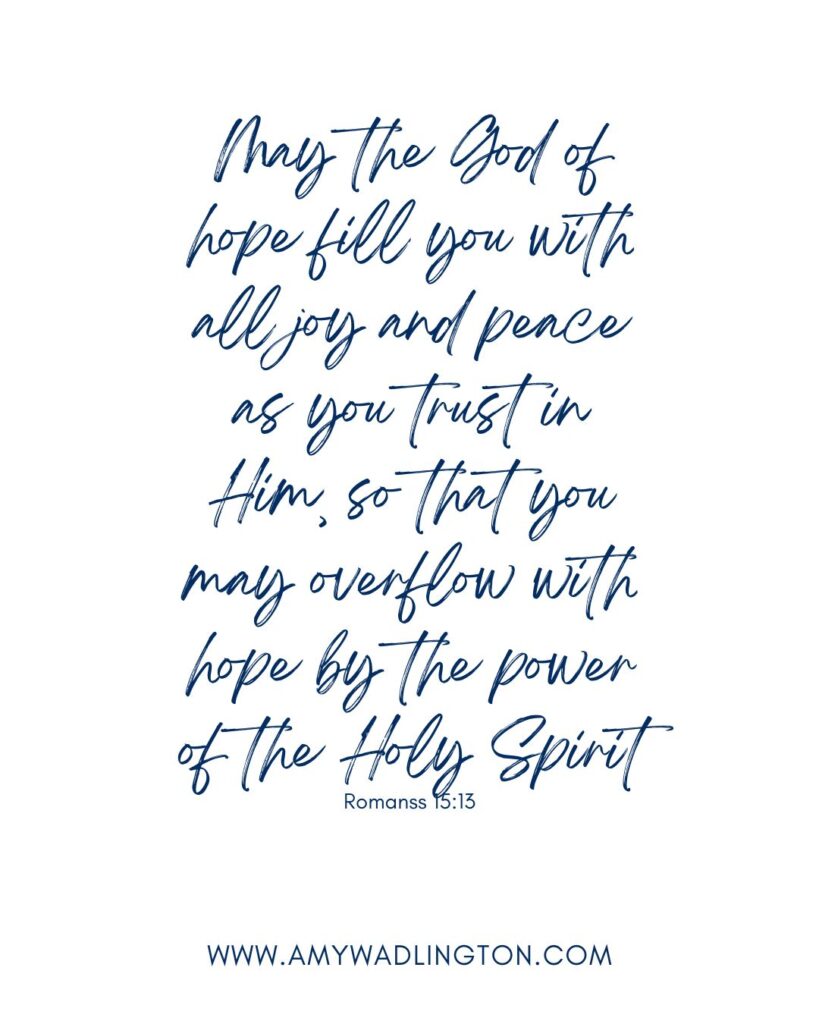 May the God of
hope fill you with
all joy and peace
as you trust in
Him, so that you
may overflow with
hope by the power
of the Holy Spirit
Romanss 15:13
WWW.AMYWADLINGTON.COM